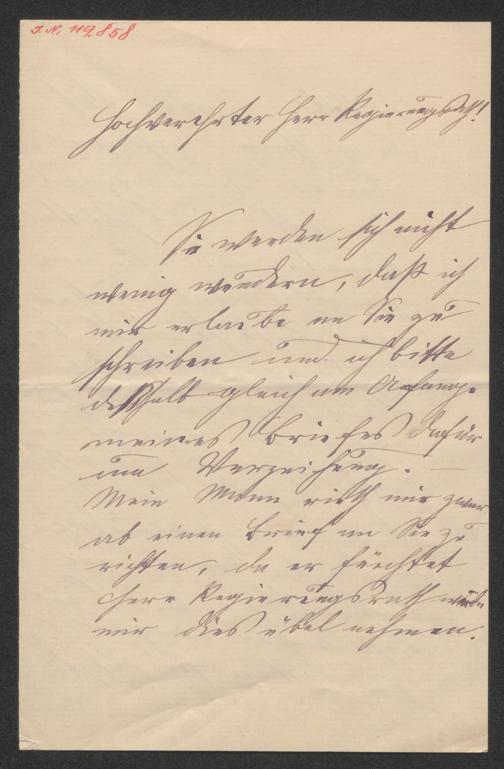 J.N. 119.858
Hochverehrter Herr Regierungsrath!
Sie werden sich nicht
wenig wundern, daß ich
mir erlaube an Sie zu
schreiben und ich bitte
deßhalb gleich am Anfange
meines Briefes dafür
um Verzeihung. —
Mein Mann rieth mir zwar
ab einen Brief an Sie zu
richten, da er fürchtet
Herr Regierungsrath würden
mir dies übel nehmen.